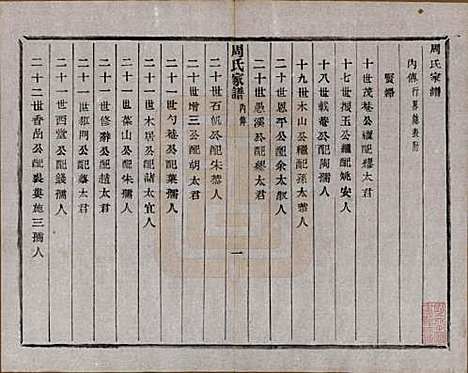 周氏家譜
內傳
賢婦
十世茂菴公繼配繆太君
十七世櫻玉公繼配姚安人
十八世載菴公配陶孺人
十九世木山公繼配孫太恭人
二十世恩平公配余太淑人
二十世愚溪公配繆太君
周氏家譜 內傳 一
二十世石帆公配朱恭人
二十世增三公配胡太君
二十一世勺菴公配葉孺人
二十一世木居公配諸太宜人
二十一世葆山公配朱孺人
二十一世修齡公配趙太君
二十一世雅門公配蔡太君
二十一世西堂公配錢孺人
二十二世香嵒公配裴婁施三孺人